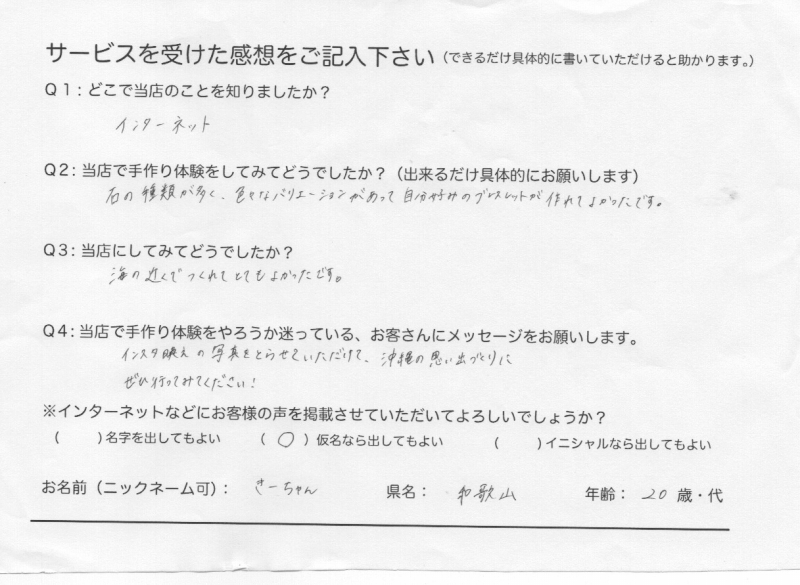 サービスを受けた感想をご記入下さい（できるだけ具体的に書いていただけると助かります。）
Q1：どこで当店のことを知りましたか？
インターネット
Q2：当店で手作り体験をしてみてどうでしたか？（出来るだけ具体的にお願いします）
石の種類が多く、色々なバリエーションがあって自分好みのブレスレットが作れてよかったです。
Q3：当店にしてみてどうでしたか？
海の近くでつくれてとてもよかったです。
Q4：当店で手作り体験をやろうか迷っている、お客さんにメッセージをお願いします。
インスタ映えの写真をとらせていただけて、沖縄の思い出づくりに
ぜひ行ってみてください！
※インターネットなどにお客様の声を掲載させていただいてよろしいでしょうか？
（　　）名字を出してもよい　（ ○ ）仮名なら出してもよい　（　　）イニシャルなら出してもよい
お名前（ニックネーム可）： きーちゃん　県名： 和歌山　年齢： 20 歳・代